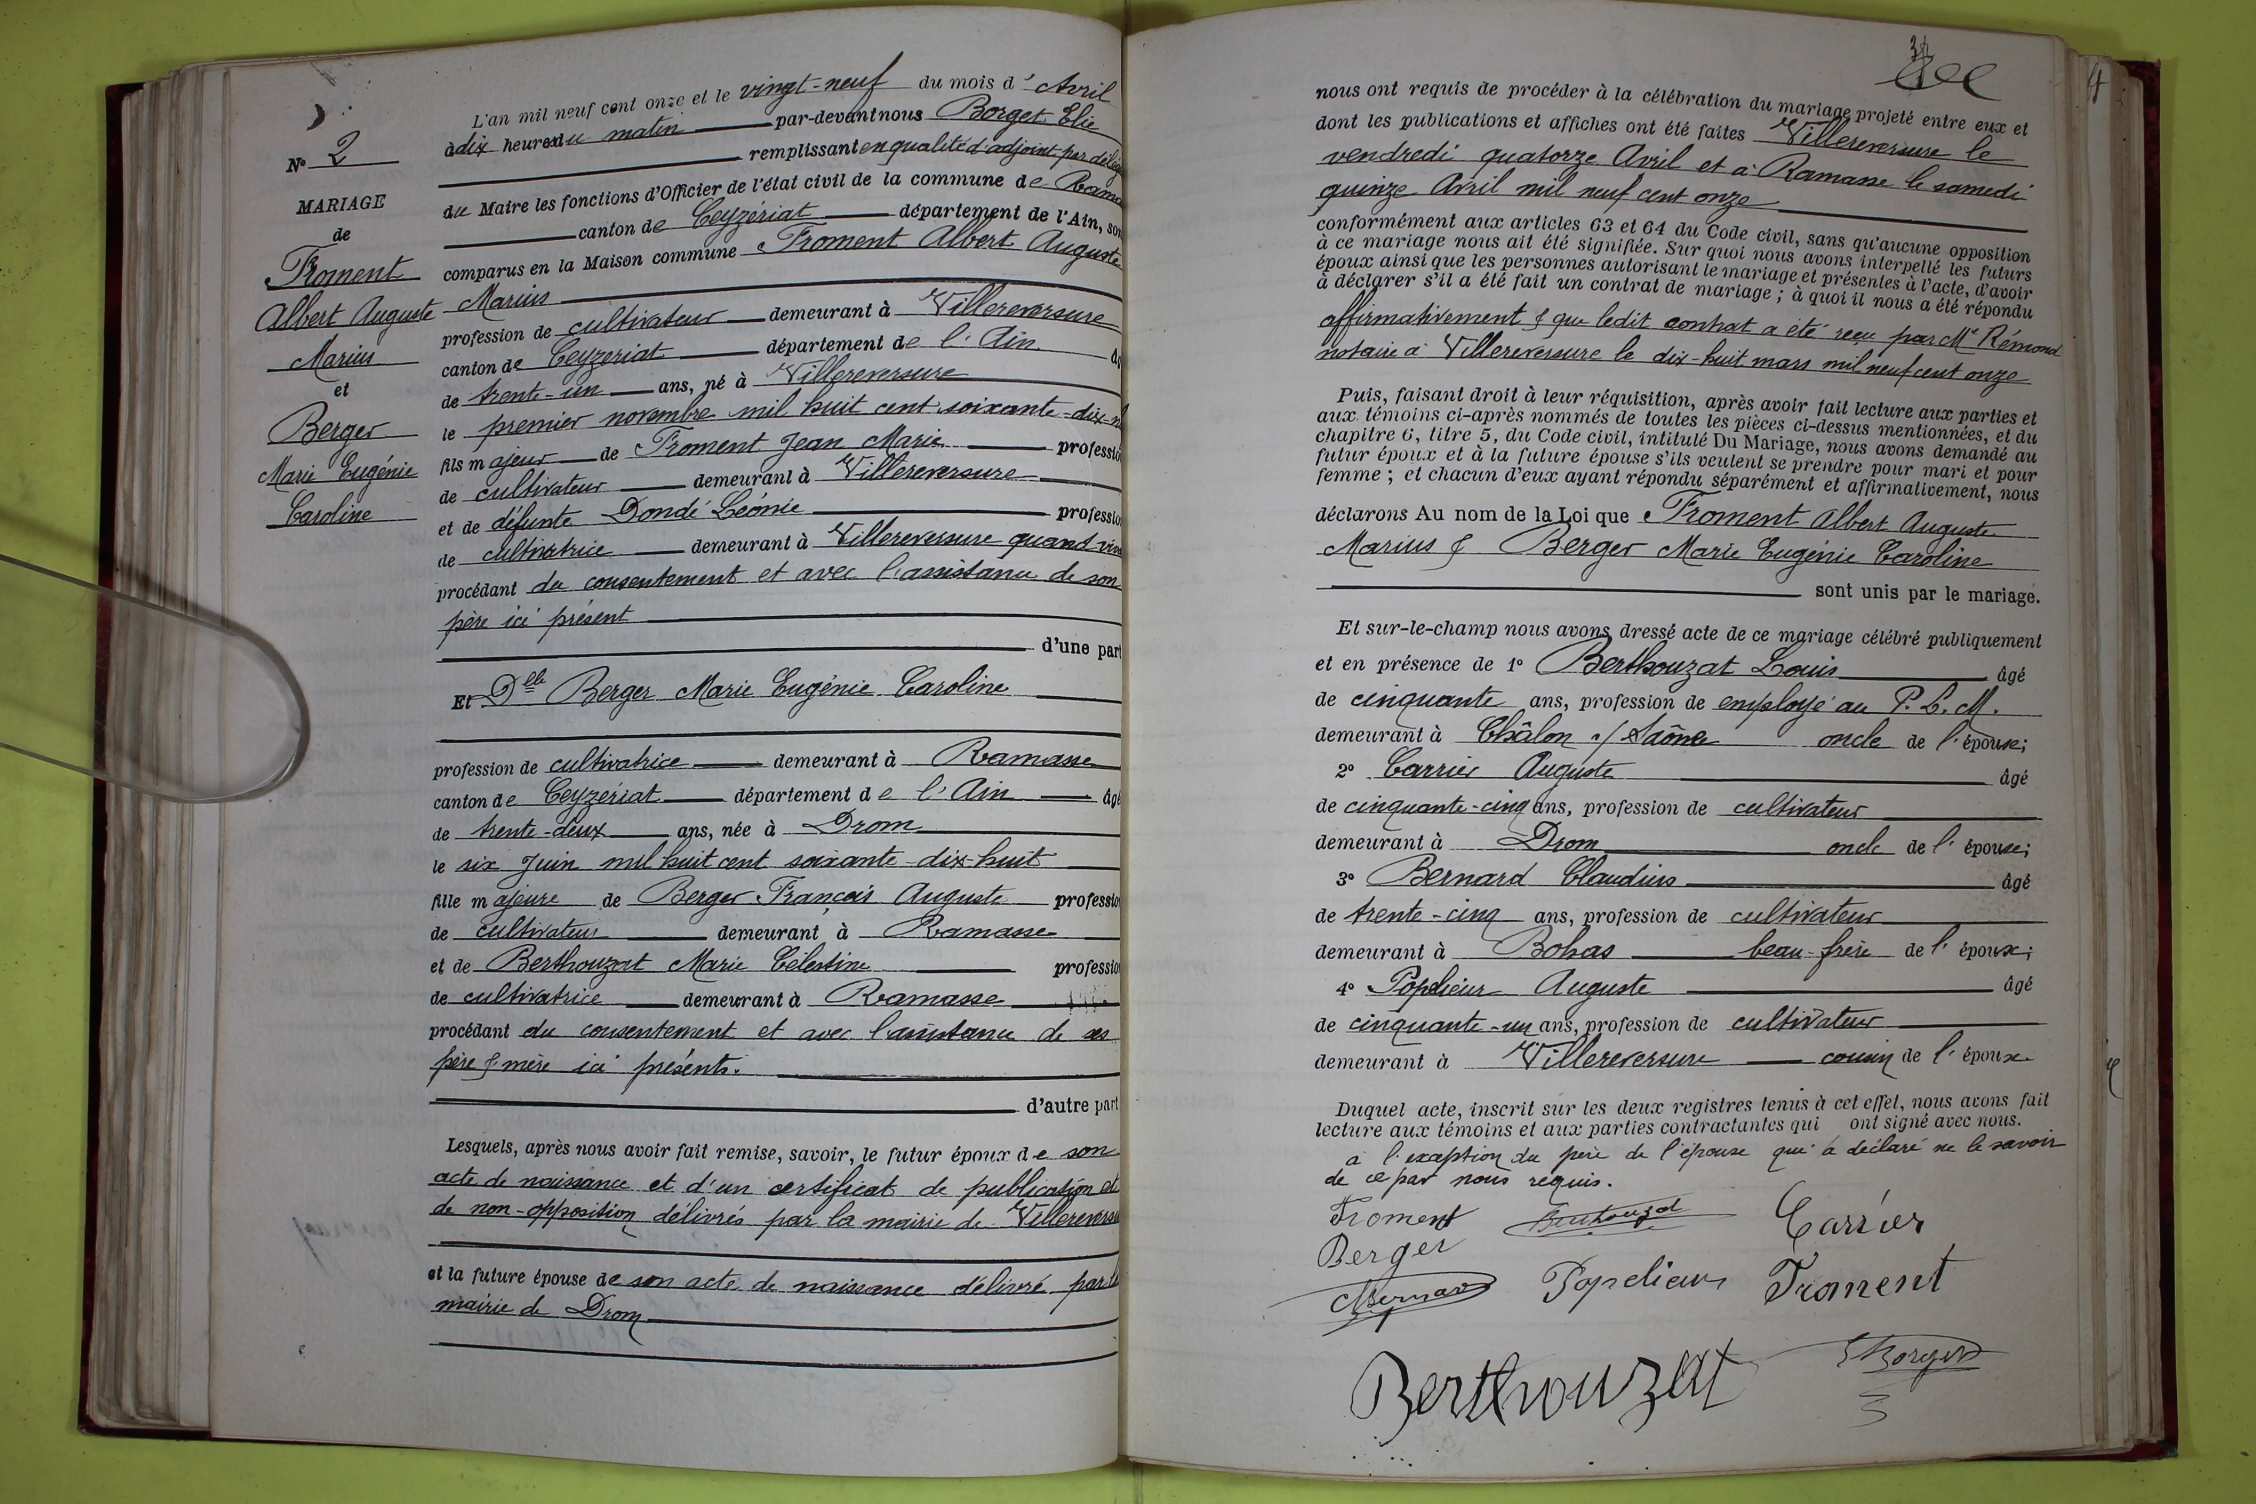 N° 2
MARIAGE
de
Froment
Albert Auguste
Marius
et
Berger
Marie Eugénie
Caroline
L'an mil neuf cent onze et le vingt-neuf du mois d' Avril
à dix heures du matin par-devant nous Borget Elie
remplissant en qualité d'adjoint par délég
du Maire les fonctions d'Officier de l'état civil de la commune de Rama
canton de Ceyzériat département de l'Ain, son
comparus en la Maison commune Froment Albert Auguste
Marius
profession de cultivateur demeurant à Villereversure
canton de Ceyzeriat département de l'Ain âg
de trente-un ans, né à Villereversure
le premier novembre mil huit cent soixante-dix-n
fils majeur de Froment Jean Marie professio
de cultivateur demeurant à Villereversure
et de défunte Dondé Léonie professio
de cultivatrice demeurant à Villereversure quand viva
procédant du consentement et avec l'assistance de son
père ici présent
d'une part
Et Dlle Berger Marie Eugénie Caroline
profession de cultivatrice demeurant à Ramasse
canton de Ceyzériat département de l'Ain âgé
de trente-deux ans, née à Drom
le six Juin mil huit cent soixante-dix-huit
fille majeure de Berger François Auguste professio
de cultivateur demeurant à Ramasse
et de Berthouzat Marie Célestine professio
de cultivatrice demeurant à Ramasse
procédant du consentement et avec l'assistance de ses
père & mère ici présents.
d'autre part
Lesquels, après nous avoir fait remise, savoir, le futur époux de son
acte de naissance et d'un certificat de publication et
de non-opposition délivrés par la mairie de Villerevers
et la future épouse de son acte de naissance délivré par la
mairie de Drom
nous ont requis de procéder à la célébration du mariage projeté entre eux et
dont les publications et affiches ont été faites Villereversure le
vendredi quatorze Avril et à Ramasse le samedi
quinze Avril mil neuf cent onze
conformément aux articles 63 et 64 du Code civil, sans qu'aucune opposition
à ce mariage nous ait été signifiée. Sur quoi nous avons interpellé les futurs
époux ainsi que les personnes autorisant le mariage et présentes à l'acte, d'avoir
à déclarer s'il a été fait un contrat de mariage; à quoi il nous a été répondu
affirmativement & que ledit contrat a été reçu par Me Rémond
notaire à Villereversure le dix-huit mars mil neuf cent onze
Puis, faisant droit à leur réquisition, après avoir fait lecture aux parties et
aux témoins ci-après nommés de toutes les pièces ci-dessus mentionnées, et du
chapitre 6, titre 5, du Code civil, intitulé Du Mariage, nous avons demandé au
futur époux et à la future épouse s'ils veulent se prendre pour mari et pour
femme; et chacun d'eux ayant répondu séparément et affirmativement, nous
déclarons Au nom de la Loi que Froment Albert Auguste
Marius & Berger Marie Eugénie Caroline
sont unis par le mariage.
Et sur-le-champ nous avons dressé acte de ce mariage célébré publiquement
et en présence de 1° Berthouzat Louis âgé
de cinquante ans, profession de employé au P.L.M.
demeurant à Châlon s/Saône oncle de l'épouse;
2° Carrier Auguste âgé
de cinquante-cinq ans, profession de cultivateur
demeurant à Drom oncle de l'épouse;
3° Bernard Claudius âgé
de trente-cinq ans, profession de cultivateur
demeurant à Bohas beau-frère de l'époux;
4° Popelieur Auguste âgé
de cinquante-un ans, profession de cultivateur
demeurant à Villereversure cousin de l'époux
Duquel acte, inscrit sur les deux registres tenus à cet effet, nous avons fait
lecture aux témoins et aux parties contractantes qui ont signé avec nous.
à l'exception du père de l'épouse qui a déclaré ne le savoir
de ce par nous requis.
Froment Berthouzat Carrier
Berger
CBernard Popelieur Froment
Berthouzat EBorget